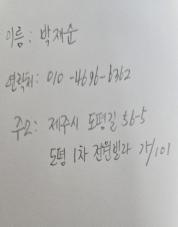 이름: 박재순
연락처: 010-4696-6362
주소: 제주시 도평길 56-5
도평 1차 전원빌라 가/101